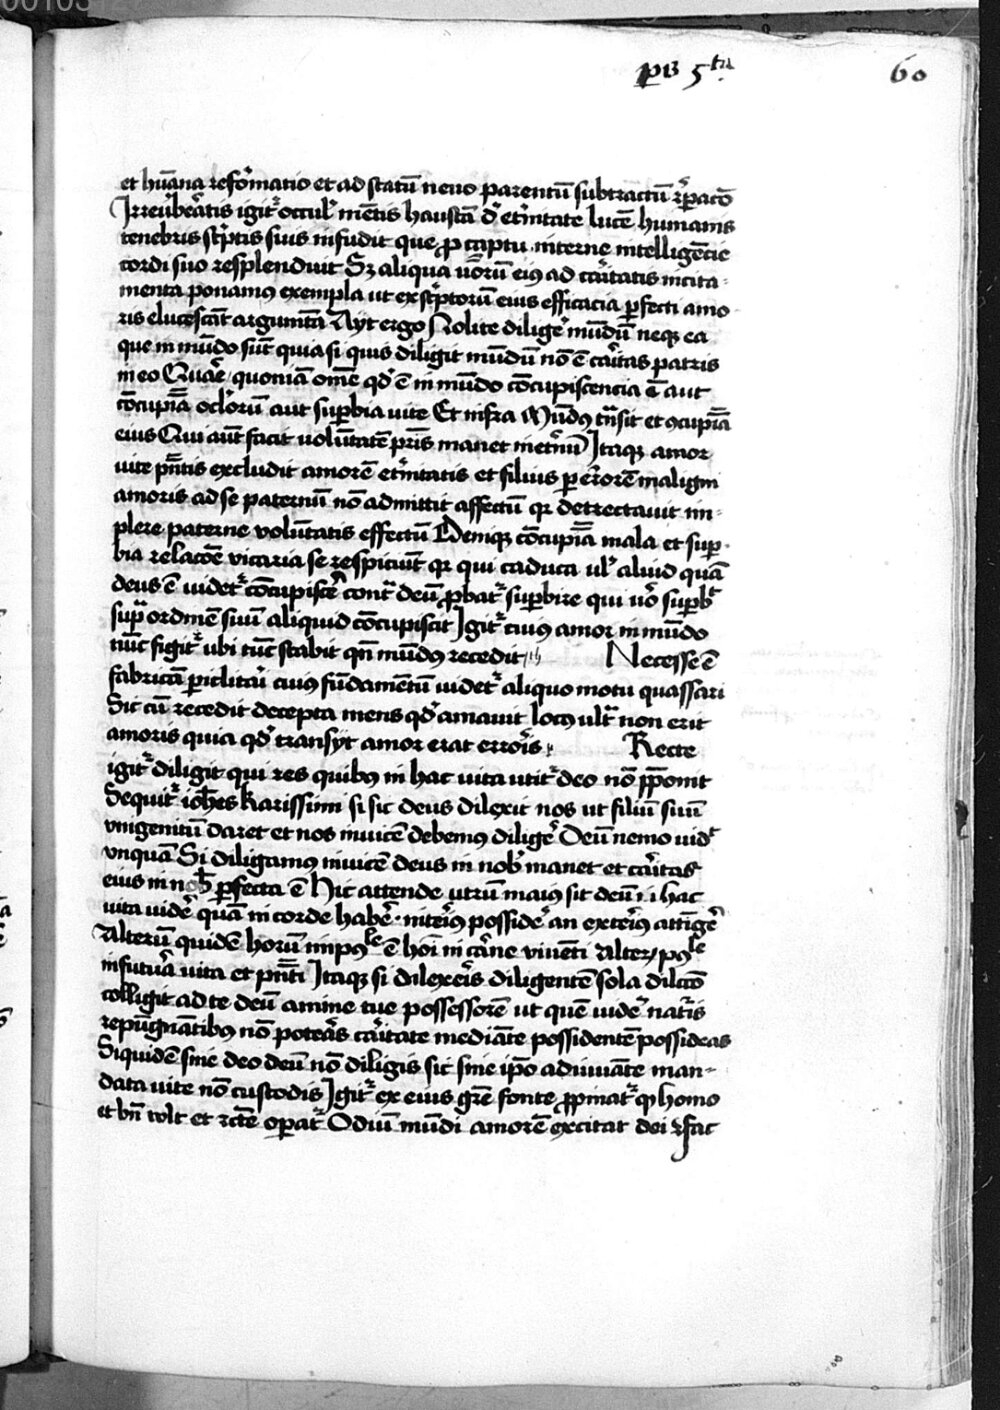 60
et hūana refōrmatio et ad statū neuo parentū subtractū
igit᷑ occul᷑ mētis haustā d᷑ et᷑nitate lucē humanis
tenebris sc᷑ptis suis infudit que ꝓ captu interne intelligēcie
cordi suo resplenduit Sꝫ aliqua u᷑orū eiꝰ ad ca᷑itatis incita-
menta ponamꝰ exempla ut ex sc᷑ptorū eius efficacia ꝑfecti amo
ris elucescāt argumēta Ayt ergo Nolite dilige᷑ mūdū neqꝫ ea
que in mūdo sūt quia si quis diligit mūdū nō ē ca᷑itas patris
in eo Qua᷑e quoniā om̄e qd᷑ ē in mūdo cōcupiscencia ē aut
cōcupīa oc᷑lorū aut suꝑbia uite Et infra Mūdꝰ t᷑nsit et ꝯcupīa
eius Qui aūt facit uolūtatē p᷑ris manet in et᷑nū Itaqꝫ amor
uite pn̄tis excludit amorē et᷑nitatis et filius ꝑ e᷑rorē maligni
amoris ad se paternū nō admittit affectū qr detrectauit im-
plere paterne uolūtatis effectū Deniqꝫ cōcupīa mala et suꝑ-
bia relacōe vicaria se respiciūt qr qui caduca ul᷑ aliud quā
deus ē uidet᷑ cōcupisce᷑ cont᷑ deū ꝓbat᷑ suꝑbire qui uō suꝑbᵗ
sup᷑ ordinē suū aliquid cōcupiscit Igit᷑ cuiꝰ amor in mūdo
nūc figit᷑ ubi tūc stabit qn̄ mūdꝰ recedit Necesse ē
fabricā ꝑiclita᷑i cuiꝰ fūdamētū uidet᷑ aliquo motu quassari
Sic cū recedit decepta mens qd᷑ amauit locꝰ ult᷑ non erit
amoris quia qd᷑ transyt amor erat erro᷑is Recte
igit᷑ diligit qui res quibꝰ in hac uita utit᷑ deo nō p̄ponit
Sequit᷑ ioh̄es Karissimi si sic deus dilexit nos ut filiū suū
vnigenitū daret et nos inuicē debemꝰ dilige᷑ Deū nemo uidᵗ
vnquā Si diligamus inuicē deus in nob᷑ manet et ca᷑itas
eius in nob᷑ ꝑfecta ē Hic attende utrū maius sit deū i hac
uita uide᷑ quā in corde habe᷑ inte᷑iꝰ posside᷑ an exte᷑iꝰ attīge᷑
Alterū quidē horū impoˡᵉ ē hoī in ca᷑ne viuēti
in futu᷑a uita et pn̄ti Itaqꝫ si dilexe᷑is diligentē sola dilcōe
colligit ad te deū amīne tue possessorē ut quē uide᷑ nat᷑is
repūgnātibꝰ nō pote᷑as ca᷑itate mediāte possidentē possideas
Siquidē sine deo deū nō diligis sic sine ip̄o adiuuāte man-
data uite nō custodis Igit᷑ ex eius gr̄e fonte ꝓpinat᷑ ꝙ homo
et bn̄ volt et operat᷑ Odiū mūdi amorē excitat dei